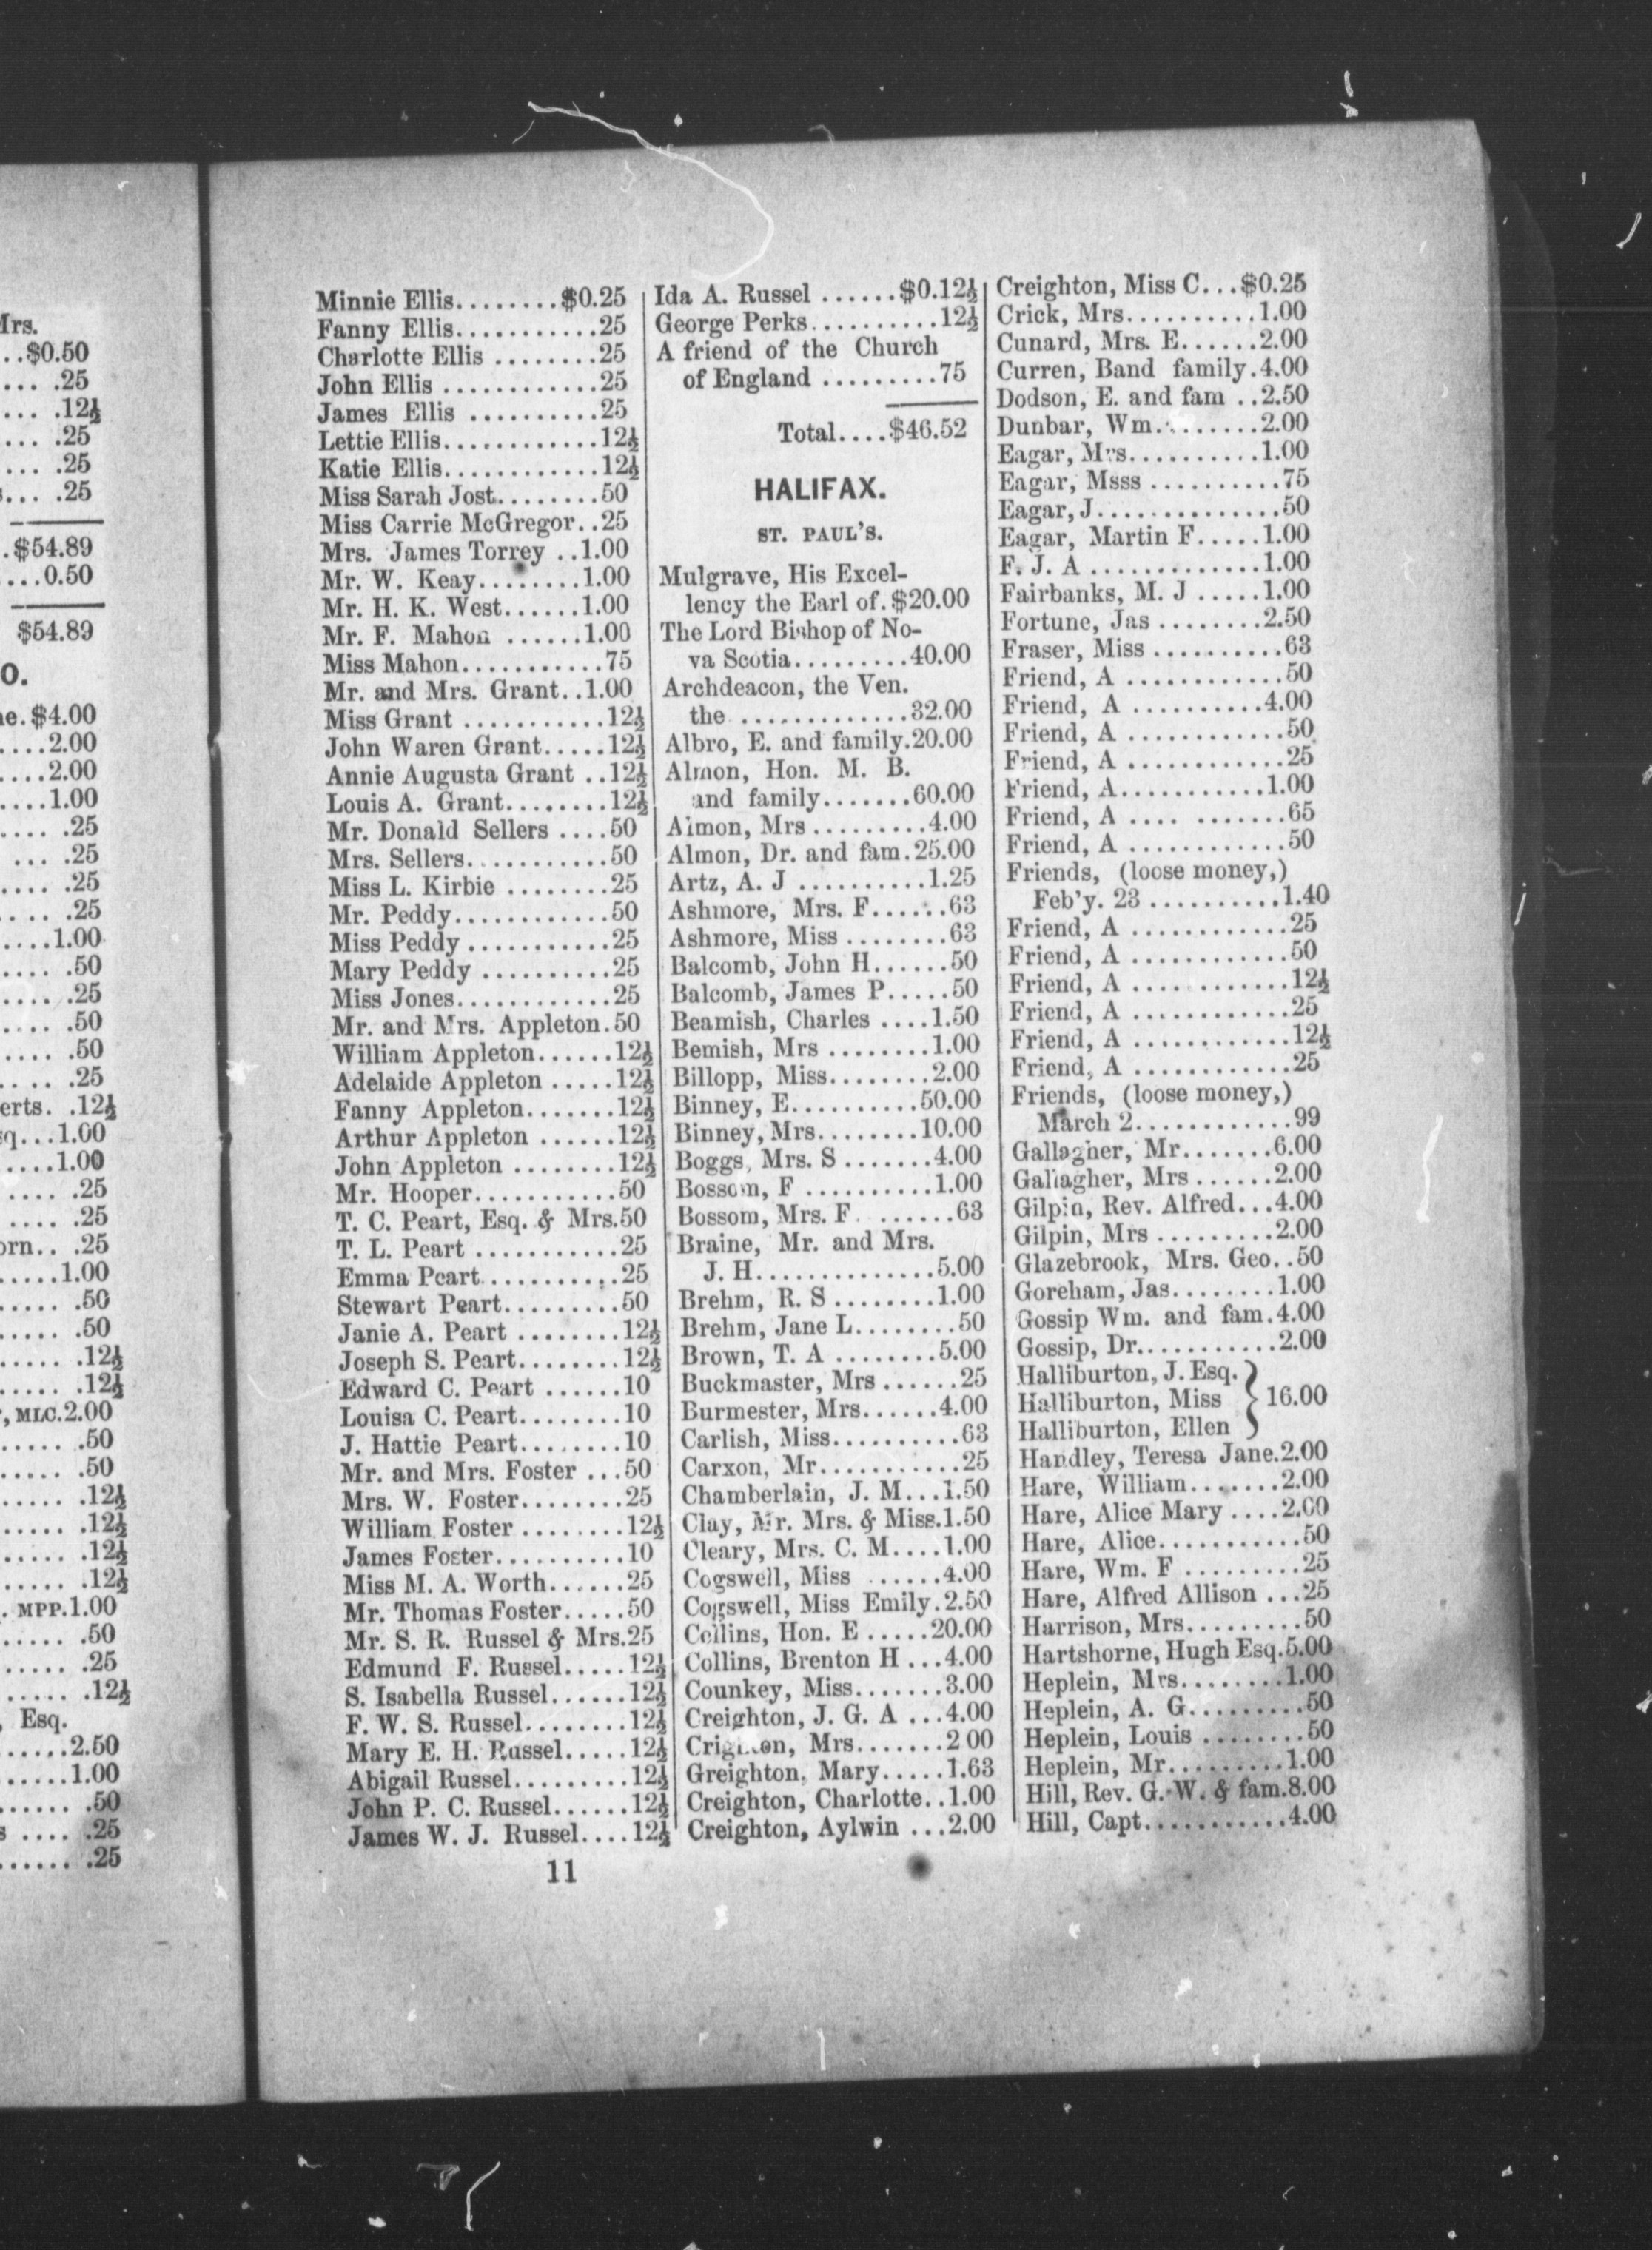 Mrs.
..$0.50
.... .25
.... .12½
.... .25
.... .25
.... .25
.$54.89
...0.50
$54.89
O.
$4.00
....2.00
....2.00
....1.00
.... .25
... .25
.... .25
.... .25
....1.00
.... .50
.... .25
.... .50
.... .50
.... .25
erts. .12½
...1.00
....1.00
.... .25
.... .25
orn.. .25
.....1.00
..... .50
..... .50
..... .12½
..... .12½
, MLC.2.00
..... .50
..... .50
..... .12½
..... .12½
..... .12½
..... .12½
. MPP.1.00
..... .50
..... .25
..... .12½
, Esq.
......2.50
......1.00
...... .50
s .... .25
...... .25
Minnie Ellis........$0.25
Fanny Ellis...........25
Charlotte Ellis ........25
John Ellis ............25
James Ellis ..........25
Lettie Ellis............12½
Katie Ellis............12½
Miss Sarah Jost........50
Miss Carrie McGregor..25
Mrs. James Torrey ..1.00
Mr. W. Keay........1.00
Mr. H. K. West......1.00
Mr. F. Mahon ......1.00
Miss Mahon...........75
Mr. and Mrs. Grant..1.00
Miss Grant ...........12½
John Waren Grant.....12½
Annie Augusta Grant ..12½
Louis A. Grant........12½
Mr. Donald Sellers ....50
Mrs. Sellers...........50
Miss L. Kirbie ........25
Mr. Peddy............50
Miss Peddy ...........25
Mary Peddy ..........25
Miss Jones............25
Mr. and Mrs. Appleton.50
William Appleton......12½
Adelaide Appleton .....12½
Fanny Appleton.......12½
Arthur Appleton ......12½
John Appleton ........12½
Mr. Hooper...........50
T. C. Peart, Esq. & Mrs.50
T. L. Peart ...........25
Emma Peart...........25
Stewart Peart.........50
Janie A. Peart ........12½
Joseph S. Peart........12½
Edward C. Peart ......10
Louisa C. Peart........10
J. Hattie Peart........10
Mr. and Mrs. Foster ...50
Mrs. W. Foster........25
William Foster ........12½
James Foster..........10
Miss M. A. Worth......25
Mr. Thomas Foster.....50
Mr. S. R. Russel & Mrs.25
Edmund F. Russel.....12½
S. Isabella Russel......12½
F. W. S. Russel........12½
Mary E. H. Russel.....12½
Abigail Russel.........12½
John P. C. Russel......12½
James W. J. Russel....12½
Ida A. Russel ......$0.12½
George Perks..........12½
A friend of the Church
of England .........75
Total....$46.52
HALIFAX.
ST. PAUL'S.
Mulgrave, His Excel-
lency the Earl of.$20.00
The Lord Bishop of No-
va Scotia.........40.00
Archdeacon, the Ven.
the .............32.00
Albro, E. and family.20.00
Almon, Hon. M. B.
and family.......60.00
Almon, Mrs .........4.00
Almon, Dr. and fam.25.00
Artz, A. J ..........1.25
Ashmore, Mrs. F......63
Ashmore, Miss ........63
Balcomb, John H......50
Balcomb, James P.....50
Beamish, Charles ....1.50
Bemish, Mrs ........1.00
Billopp, Miss........2.00
Binney, E..........50.00
Binney, Mrs........10.00
Boggs, Mrs. S .......4.00
Bossom, F ..........1.00
Bossom, Mrs. F. ......63
Braine, Mr. and Mrs.
J. H..............5.00
Brehm, R. S ........1.00
Brehm, Jane L........50
Brown, T. A ........5.00
Buckmaster, Mrs ......25
Burmester, Mrs......4.00
Carlish, Miss..........63
Carxon, Mr...........25
Chamberlain, J. M...1.50
Clay, Mr. Mrs. & Miss.1.50
Cleary, Mrs. C. M....1.00
Cogswell, Miss ......4.00
Cogswell, Miss Emily.2.50
Collins, Hon. E .....20.00
Collins, Brenton H ...4.00
Counkey, Miss.......3.00
Creighton, J. G. A ...4.00
Mrs.......2 00
Greighton, Mary.....1.63
Creighton, Charlotte..1.00
Creighton, Aylwin ...2.00
Creighton, Miss C...$0.25
Crick, Mrs..........1.00
Cunard, Mrs. E......2.00
Curren, Band family.4.00
Dodson, E. and fam ..2.50
Dunbar, Wm........2.00
Eagar, Mrs..........1.00
Eagar, Msss ..........75
Eagar, J..............50
Eagar, Martin F.....1.00
F. J. A .............1.00
Fairbanks, M. J .....1.00
Fortune, Jas ........2.50
Fraser, Miss ..........63
Friend, A ............50
Friend, A ..........4.00
Friend, A ............50
Friend, A ............25
Friend, A...........1.00
Friend, A .... .......65
Friend, A ............50
Friends, (loose money,)
Feb'y. 23 ..........1.40
Friend, A ............25
Friend, A ............50
Friend, A ............12½
Friend, A ............25
Friend, A ............12½
Friend, A ............25
Friends, (loose money,)
March 2............99
Gallagher, Mr.......6.00
Gallagher, Mrs ......2.00
Gilpin, Rev. Alfred...4.00
Gilpin, Mrs .........2.00
Glazebrook, Mrs. Geo..50
Goreham, Jas........1.00
Gossip Wm. and fam.4.00
Gossip, Dr...........2.00
Halliburton, J. Esq.
Halliburton, Miss } 16.00
Halliburton, Ellen
Handley, Teresa Jane.2.00
Hare, William.......2.00
Hare, Alice Mary ....2.00
Hare, Alice...........50
Hare, Wm. F .........25
Hare, Alfred Allison ...25
Harrison, Mrs.........50
Hartshorne, Hugh Esq.5.00
Heplein, Mrs........1.00
Heplein, A. G.........50
Heplein, Louis ........50
Heplein, Mr.........1.00
Hill, Rev. G. W. & fam.8.00
Hill, Capt...........4.00
11